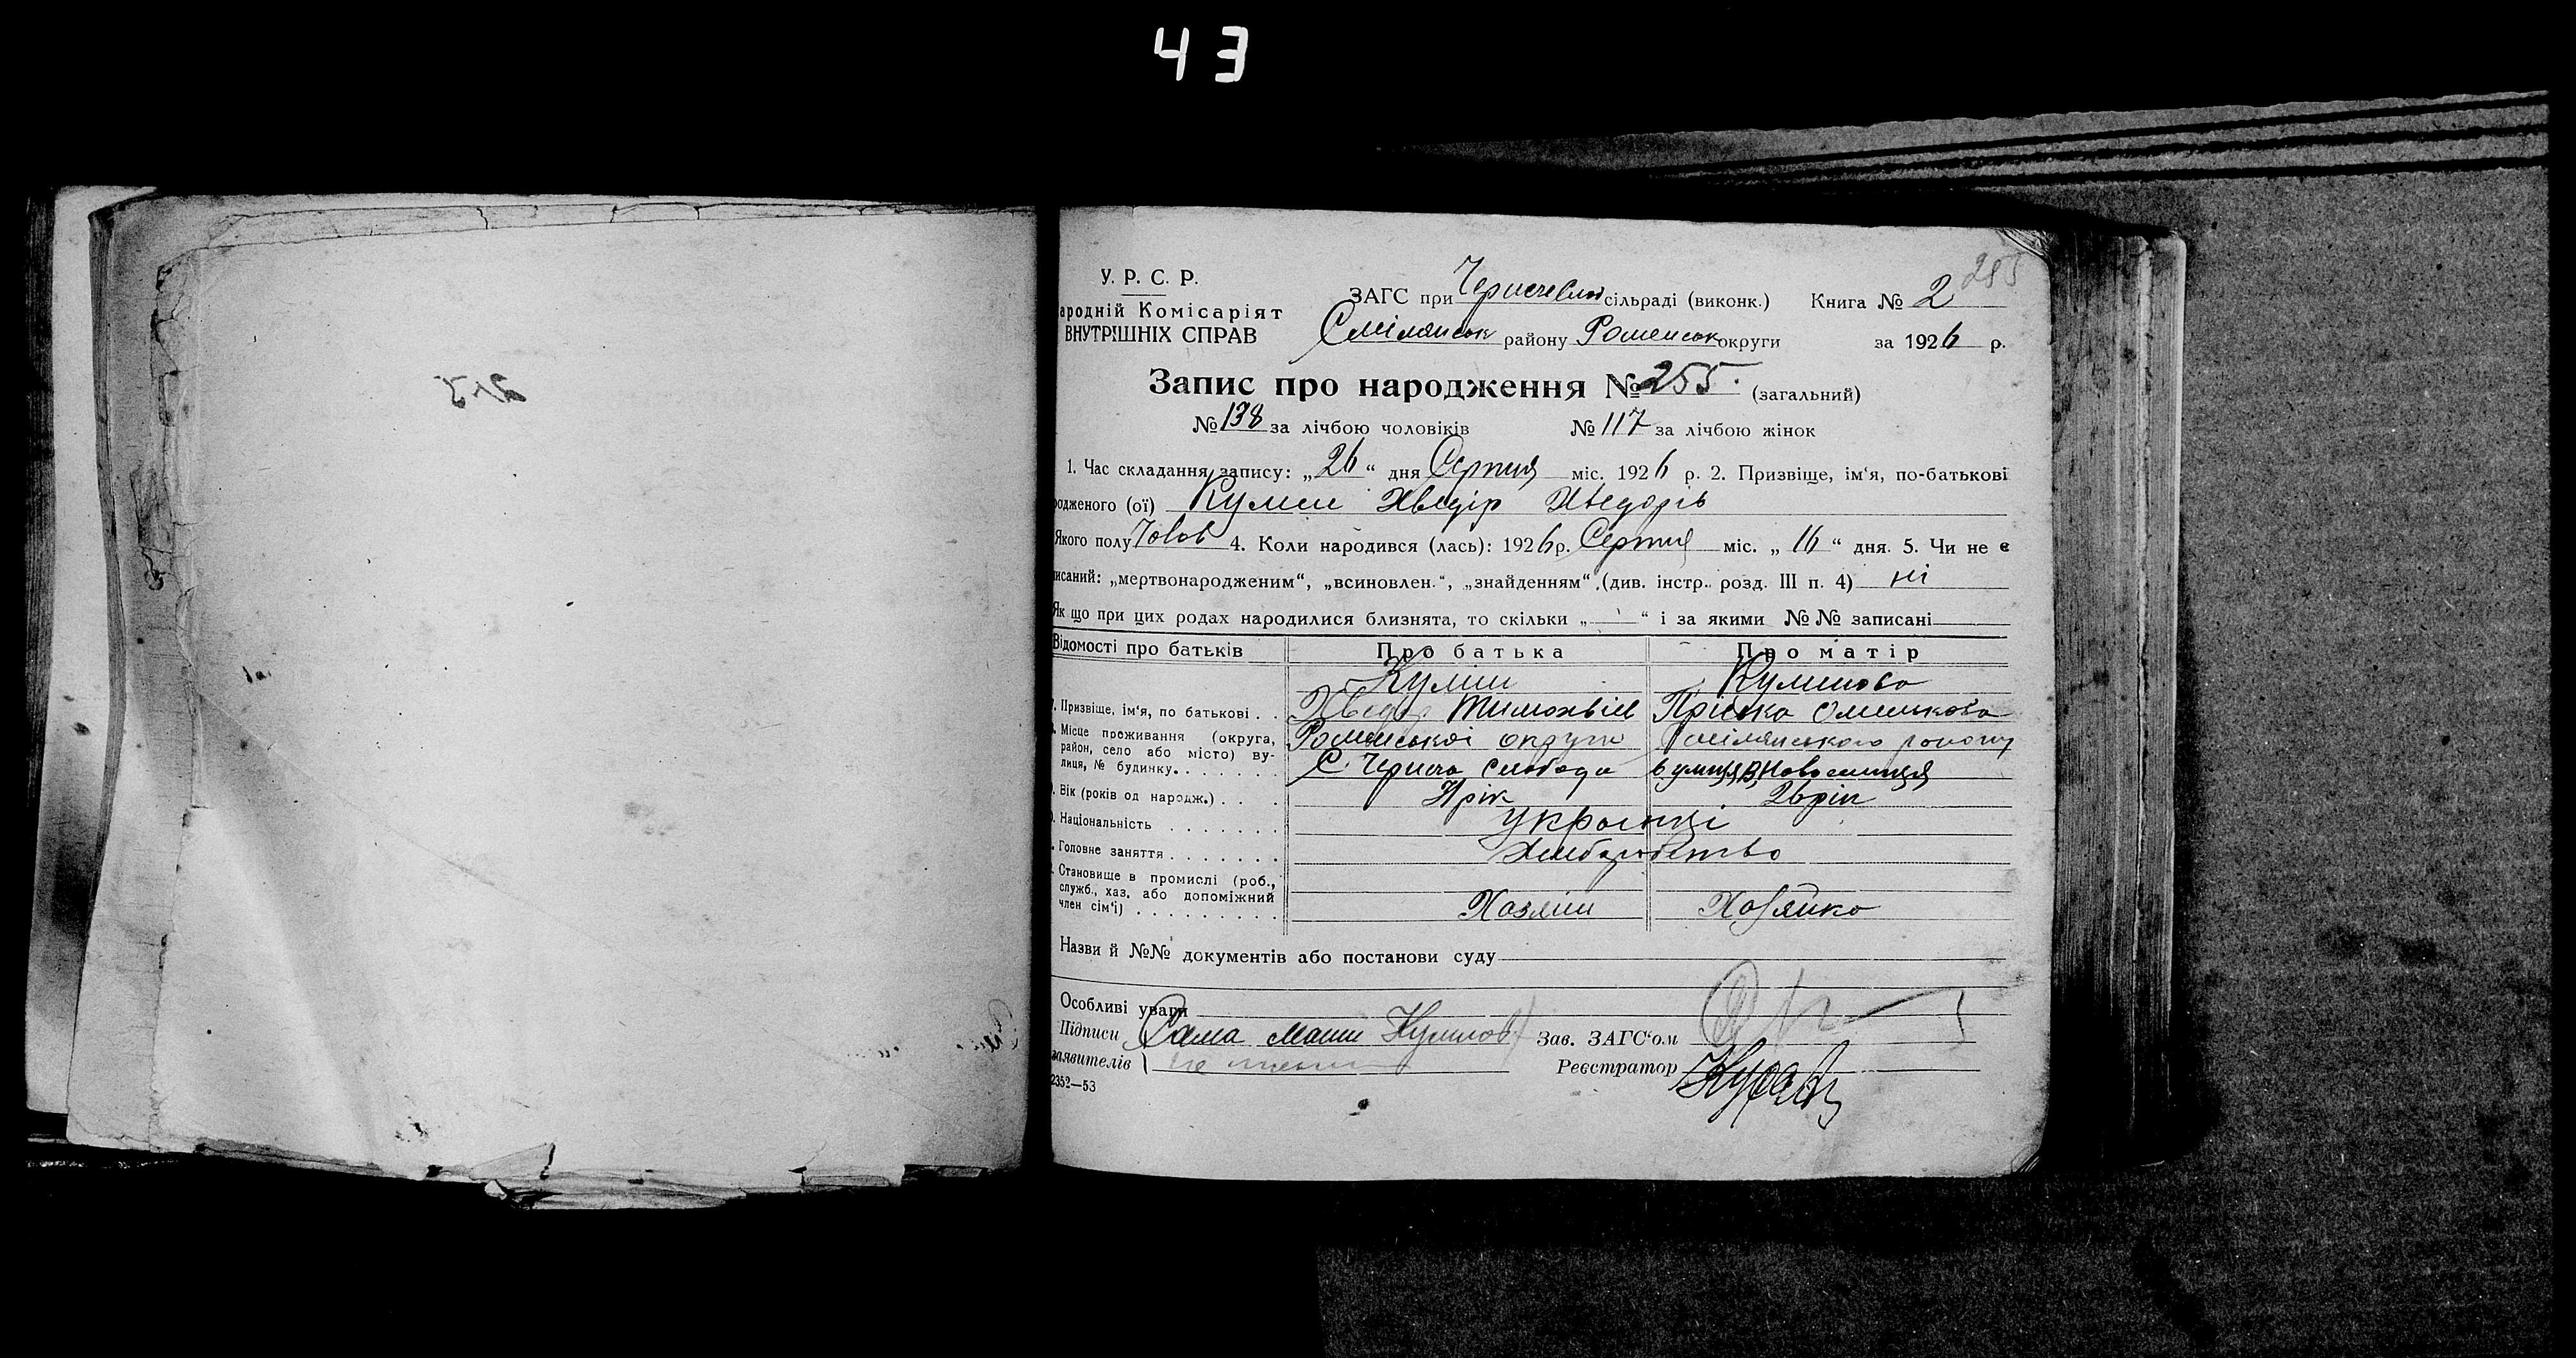 43
255
У. Р. С. Р.
ародній Комісаріят
ВНУТРІШНІХ СПРАВ
ЗАГС при сільраді (виконк.) Книга № 2
Смілянськ району Роменськ округи за 1926 р.
Запис про народження № 255. (загальний)
№ 138 за лічбою чоловіків № 117 за лічбою жінок
1. Час складання запису: „26“ дня Серпня міс. 1926 р. 2. Призвіще, ім‘я, по-батькові
родженого (ої) Кумин Хведір Хведорів
Якого полу Чолов 4. Коли народився (лась): 1926 р. Серпня міс. „16“ дня. 5. Чи не є
писаний: „мертвонародженим“, „всиновлен.“, „знайденням“ (див. інстр. розд. III п. 4) ні
Як що при цих родах народилися близнята, то скільки „ “ і за якими № № записані
Відомості про батьків Про батька Про матір
Кумин Куминова
Призвіще, ім‘я, по батькові . . Хведір Тимохвіїв Пріська Омелькова
Місце проживання (округа,
район, село або місто) ву-
лиця, № будинку. . . . . . .
Роменської округи Смілянського району
С. Черача Слобода вулиця
Вік (років од народж.) . . . рік 26 рік
Національність . . . . . . . Українці
Головне заняття . . . . . . . Хліборобство
Становище в промислі (роб.,
служб., хаз. або допоміжний
член сім‘ї) . . . . . . . . .
Хазяїн Хазяйка
Назви й №№ документів або постанови суду
Особливі уваги
Підписи Сама мати Зав. ЗАГС‘ом
заявителів Реєстратор
2352—53